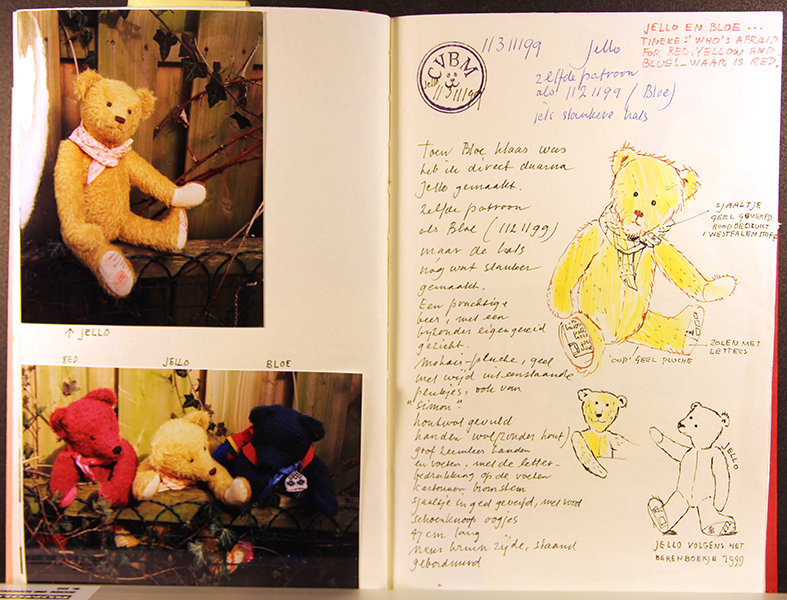 ↑ JELLO
RED JELLO BLOE
CVBM
Jello
11311199
11311199 Jello
zelfde patroon
als 1121199 (Bloe)
iets slankere hals
JELLO EN BLOE ...
TINEKE: 'WHO'S AFRAID
FOR RED, YELLOW AND
BLUE!' – WAAR IS RED.
Toen Bloe klaar was
heb ik direct daarna
Jello gemaakt.
zelfde patroon
als Bloe (1121199)
maar de hals
nog wat slanker
gemaakt.
Een prachtige
beer, met een
bijzonder eigengereid
gezicht.
mohair-pluche, geel
met wijd uiteenstaande
plukjes, ook van
"Simon".
houtwol gevuld
handen (wol/zonder hout)
grof zeemleer handen
en voeten, met de letter-
bedrukking op de voeten
kartonnen bromstem
sjaaltje in geel geverfd, met rood
schoenknoop oogjes
47 cm lang
neus bruin zijde, staand
geborduurd
SJAALTJE
GEEL GEVERFD
ROOD BEDRUKT
WESTFALENSTOF
ZOLEN MET
LETTERS
'OUD' GEEL PLUCHE
JELLO
JELLO VOLGENS HET
BERENBOEKJE 1999